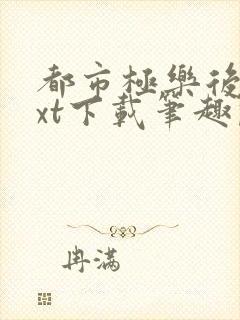 都市極樂後
xt下載筆趣
冉满